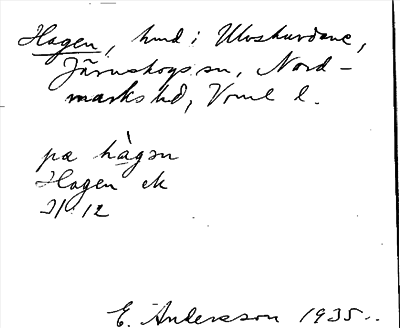 Hagen, hmd i Ulvshurdane,
Järnskogs sn, Nord-
marks hd, Vrml l.
pæ hàgən
Hagen ek
21/12
E. Andersson 1935